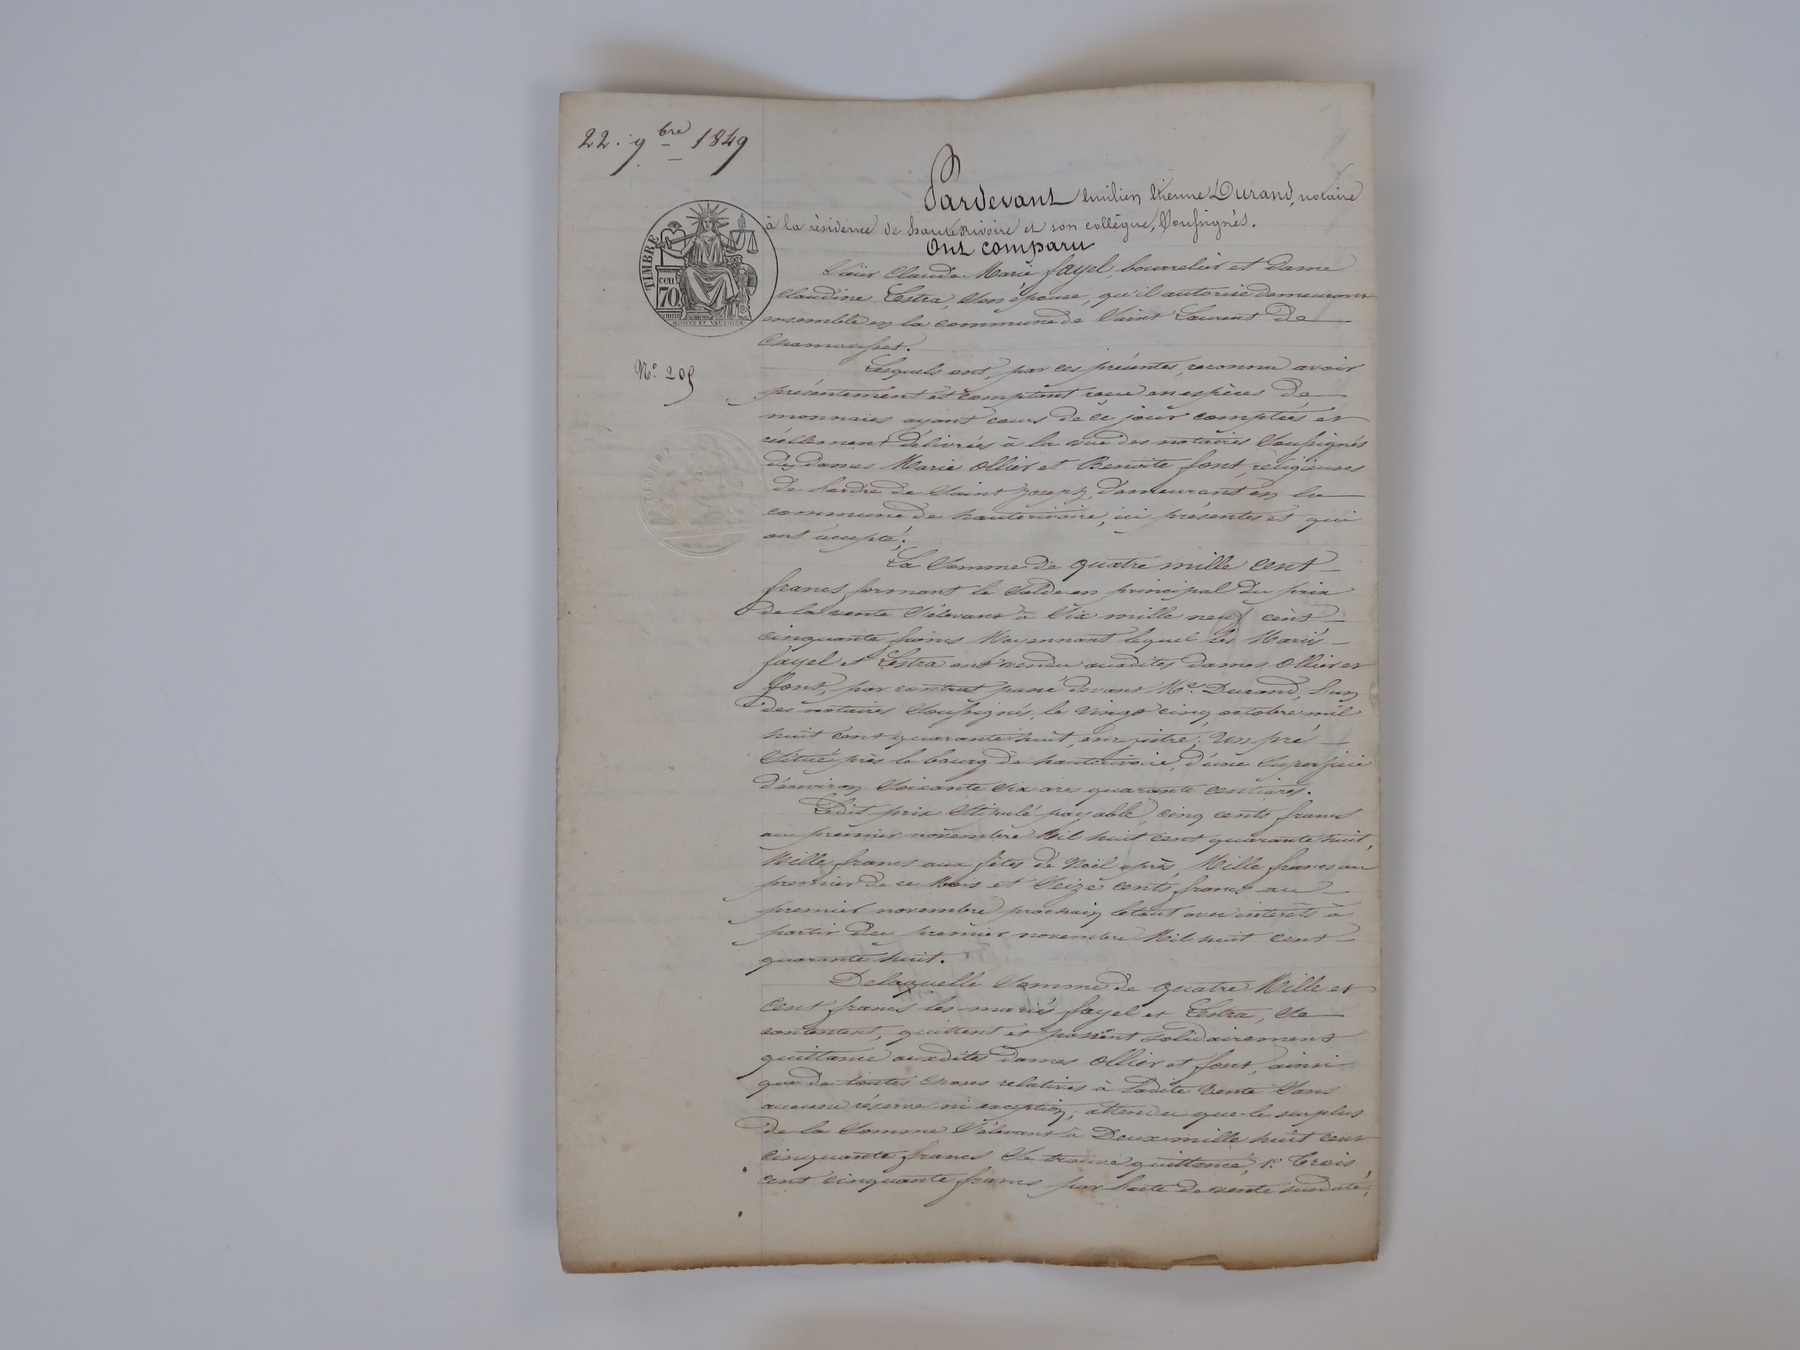 22. 9bre 1849
Pardevant Emilien Etienne Durand, notaire
à la résidence de hauterivoire et son collègue, Soussignés.
Ont comparu
TIMBRE
cen
70
Sieur Claude Marie fayel, bourrelier et Dame
Claudine Lestra, Son épouse, qu'il autorise demeurant
ensemble en la commune de Saint Laurent De
Chamousset.
N.° 205
Lesquels ont, par ces présentes, reconnu avoir
présentement et comptant reçu en espèces de
monnaies ayant cours de ce jour comptées et
réellement délivrées à la vue des notaires Soussignés
des dames Marie Ollier et Benoite font, religieuses
de l'ordre de Saint Joseph, demeurant en la
commune de hauterivoire, ici présentes et qui
ont accepté;
La Somme de quatre mille cent
francs formant le Solde en principal du prix
de la vente S'élevant à Six mille neuf cent
cinquante francs Moyennant lequel les Mariés
fayel et Lestra ont vendu auxdites dames Ollier et
font, par contrat passé devant Me. Durand, l'un
des notaires Soussignés, le vingt cinq octobre mil
huit cent quarante huit, enregistré; Un pré
Situé près le bourg de hauterivoire, d'une Superficie
d'environ Soixante Six ares quarante centiares.
Ledit prix Stipulé payable, cinq cents francs
au premier novembre Mil huit cent quarante huit,
Mille francs aux fêtes de Noël après, Mille francs au
premier de ce Mois et Seize cents francs au
premier novembre prochain le tout avec intérêts à
partir du premier novembre Mil huit cent
quarante huit.
De laquelle Somme de quatre Mille et
Cent francs les mariés fayel et Lestra, Se
contentent, quittent et passent solidairement
quittance auxdites dames Ollier et font, ainsi
que de toutes choses relatives à Ladite Vente Sans
aucune réserve ni exception; attendu que le surplus
de la Somme S'élevant à Deux mille huit cent
cinquante francs Se trouve quittancé, 1.° Trois
cent cinquante francs par l'acte de vente susdaté;